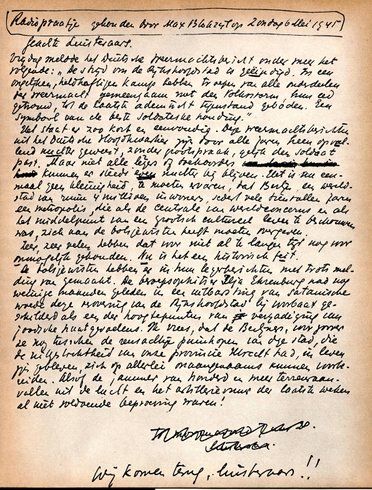 Radiopraatje gehouden door Max Blokzijl op Zondag 6 Mei 1945
Geachte Luisteraars.
Vrijdag meldde het Duitsche Weermachtsbericht onder meer het
volgende: „De strijd om de Rijkshoofdstad is geëindigd. In een
ongelijken, heldhaftigen kamp hebben troepen van alle onderdelen
der Weermacht, gemeenschappelijk met den Volksstorm, hun eed
getrouw, tot de laatste ademtocht tegenstand geboden. Een
symbool van de beste soldatieke houding."
Het staat er zoo kort en eenvoudig. Deze weermachtsberichten
uit het Duitsche Hoofdkwartier zijn door alle jaren heen opval-
lend nuchter geweest, zonder grootspraak, gelijk den soldaat
past. Maar niet alle legers of toehoorders
kunnen er steeds even nuchter bij blijven. Het is nu een-
maal geen kleinigheid, te moeten ervaren, dat Berlijn, een wereld-
stad van ruim 4 millioen inwoners, sedert vele tientallen jaren
een metropolis, die als de centrale van wereldconcerns en als
het middelpunt van een grootsch cultureel leven te beschouwen
was, zich aan de bolsjewisten heeft moeten overgeven.
Zeer, zeer velen hebben dat voor niet al te langen tijd nog voor
onmogelijk gehouden. Nu is het een historisch feit.
De bolsjewisten hebben er in hun legerberichten met trots mel-
ding van gemaakt. De Ilja Ehrenburg had nog
weinige maanden geleden in een uitbarsting van Satanische
vreugde deze verovering van de Rijkshoofdstad bij voorbaat ge-
schilderd als een der hoogtepunten van de verzadiging van
joodsche haatgevoelens. Ik vrees, dat de Berlijners, voor zoover
ze nu tusschen de reusachtige puinhoopen van die stad, die
de uitgestrektheid van onze provincie Utrecht had, in leven
zijn gebleven, zich op allerlei onaangenaams kunnen voorbe-
reiden. Alsof de jammer van honderd en meer terreuraan-
vallen uit de lucht en het artillerievuur der laatste weken
al niet voldoende beproeving waren!
Wij komen terug, luisteraars!!